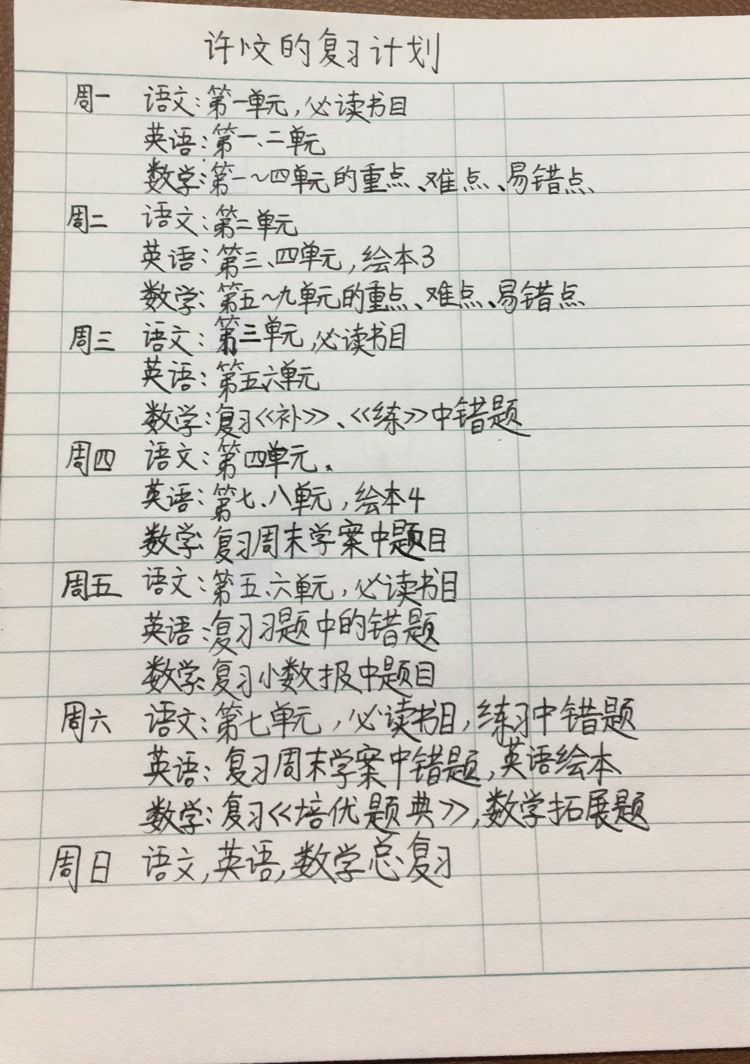 许忟的复习计划
周一 语文:第一单元,必读书目
英语:第一、二单元
数学:第一~四单元的重点、难点、易错点
周二 语文:第二单元
英语:第三、四单元,绘本3
数学:第五~九单元的重点、难点、易错点
周三 语文:第三单元,必读书目
英语:第五六单元
数学:复习《补》、《练》中错题
周四 语文:第四单元.
英语:第七、八单元,绘本4
数学:复习周末学案中题目
周五 语文:第五、六单元,必读书目
英语:复习习题中的错题
数学:复习小数报中题目
周六 语文:第七单元,必读书目,练习中错题
英语:复习周末学案中错题,英语绘本
数学:复习《培优题典》,数学拓展题
周日 语文,英语,数学总复习